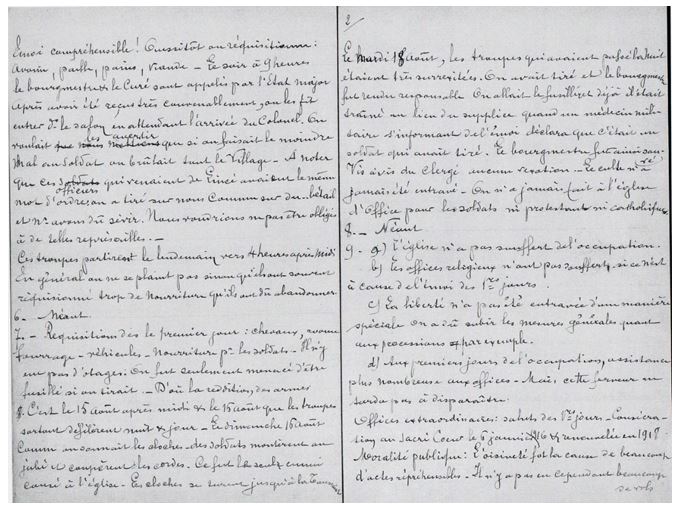 Emoi compréhensible! Aussitôt on réquisitionne:
Avoine, paille, pains, viande - Le soir à 9 heures
le bourgmestre & le Curé sont appelés par l'Etat major
après avoir été reçus très convenablement, on les fit
entrer ds le salon en attendant l'arrivée du Colonel. On
voulait avertir que si on faisait le moindre
mal au Soldat on brûlait tout le Village - A noter
que ces officiers qui venaient de avaient le même
mot d'ordre, on a tiré sur nous Comme sur du bétail
et ns avons dû sévir. Nous voudrions ne pas être obligés
à de telles représailles. -
Ces troupes partirent le lendemain vers 4 heures après Midi
En général on ne se plaint pas sinon qu'ils ont souvent
réquisionné trop de Nourriture qu'ils ont dû abandonner.
6 - Néant.
7. - Requisition dès le premier jour: chevaux, avoine
fourrage - véhicules - Nourriture pr les soldats - Il n'y
eu pas d'otages. On fut seulement menacé d'être
fusillé si on tirait - D'où la reddition des armes
8. C'est le 15 Août après midi & le 16 Août que les troupes
défilèrent nuit & jour - Le dimanche 16 Août
Comme on sonnait les cloches des soldats montèrent au
jubé et coupèrent les cordes. Ce fut le seul ennui
causé à l'église - Les cloches se jusqu'à la
2/
Le Mardi 18 Août, les troupes qui avaient passé la nuit
étaient très surexitées. On avait tiré et le bourgmestre
fut rendu responsable On allait le fusiller et déjà il était
traîné au lieu du supplice quand un médecin mili-
taire s'informant de l'émoi déclara que c'était un
soldat qui avait tiré. Le bourgmestre fut ainsi sauvé
Vis à vis du Clergé aucune vexation - Le culte n'a
jamais été entravé - On n'a jamais fait à l'église
d'Office pour les soldats ni protestant ni catholique
8. - Néant
9 - a) L'église n'a pas souffert de l'occupation.
b) Les offices religieux n'ont pas souffert, si ce n'est
à cause de l'émoi des 1ers jours.
c) La liberté n'a pas été entravée d'une manière
spéciale On a dû subir les mesures générales quant
aux processions par exemple.
d) Aux premiers jours de l'occupation, assistance
plus nombreuse aux offices - Mais cette ferveur ne
tarda pas à disparaître.
Offices extraordinaires: saluts des 1ers jours - Consécra-
tion au Sacré Coeur le 6 janvier 1916 & renouvelée en 1918.
Moralité publique: L'oisiveté fut la cause de beaucoup
d'actes répréhensibles - Il n'y a pas eu cependant beaucoup
de vols